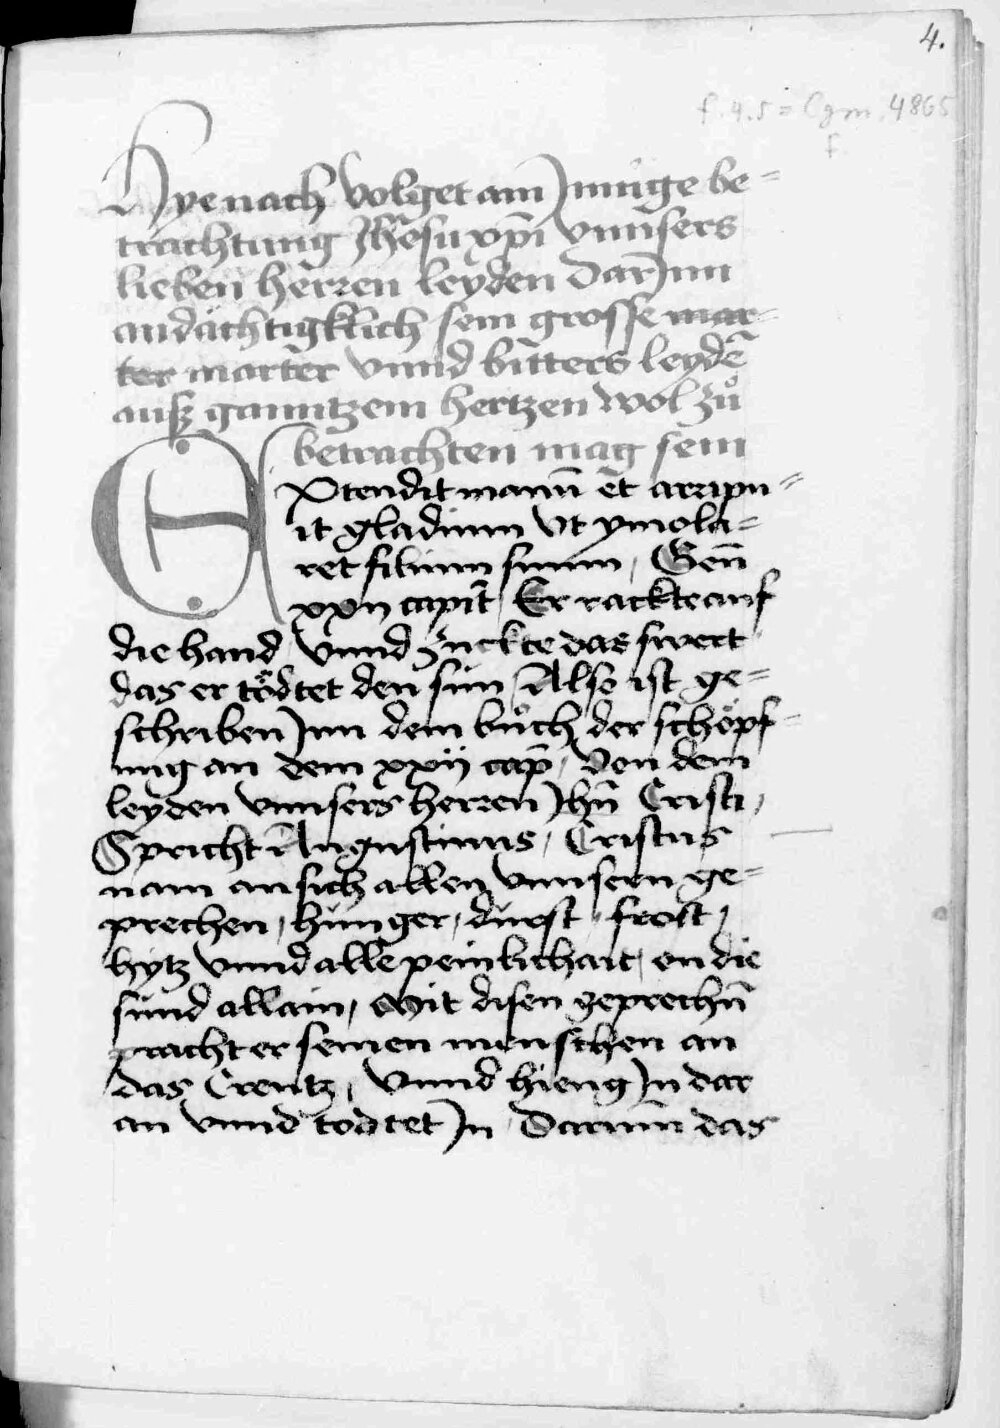 4.
f. 4.5 = Cgm. 4865
f.
Hye nach volget ain Jnnige be=
trachtung Jhesu xp̄i vnnsers
lieben herren leyden Dar Jnn
andächtigklich sein grosse mar=
ter marter vnnd bitters leydē
ausz ganntzem hertzen wol zů
betrachten mag sein
EXtendit manū et arripu=
it gladium vt ymola=
ret filium suum, Geñ
xxij capit̄, Er rackte auf
die hand vnnd zuckte das swert
das er tödtet den sun Also ist ge=
schriben Jnn dem bůch der schöpf=
ung an dem xxij cap̄, Von dem
leyden vnnsers herren Jhū Cristi,
Spricht Augustinus, Cristus
nam an sich allen vnnsern ge=
prechen, hunger, durst, frost,
hytz vnnd alle peinlichait, on die
sünd allain, Mit disen geprechn̄
pracht er seinen menschen an
das Creutz, Vnnd hieng Jn dar
an vnnd todtet Jn Darum̄ das